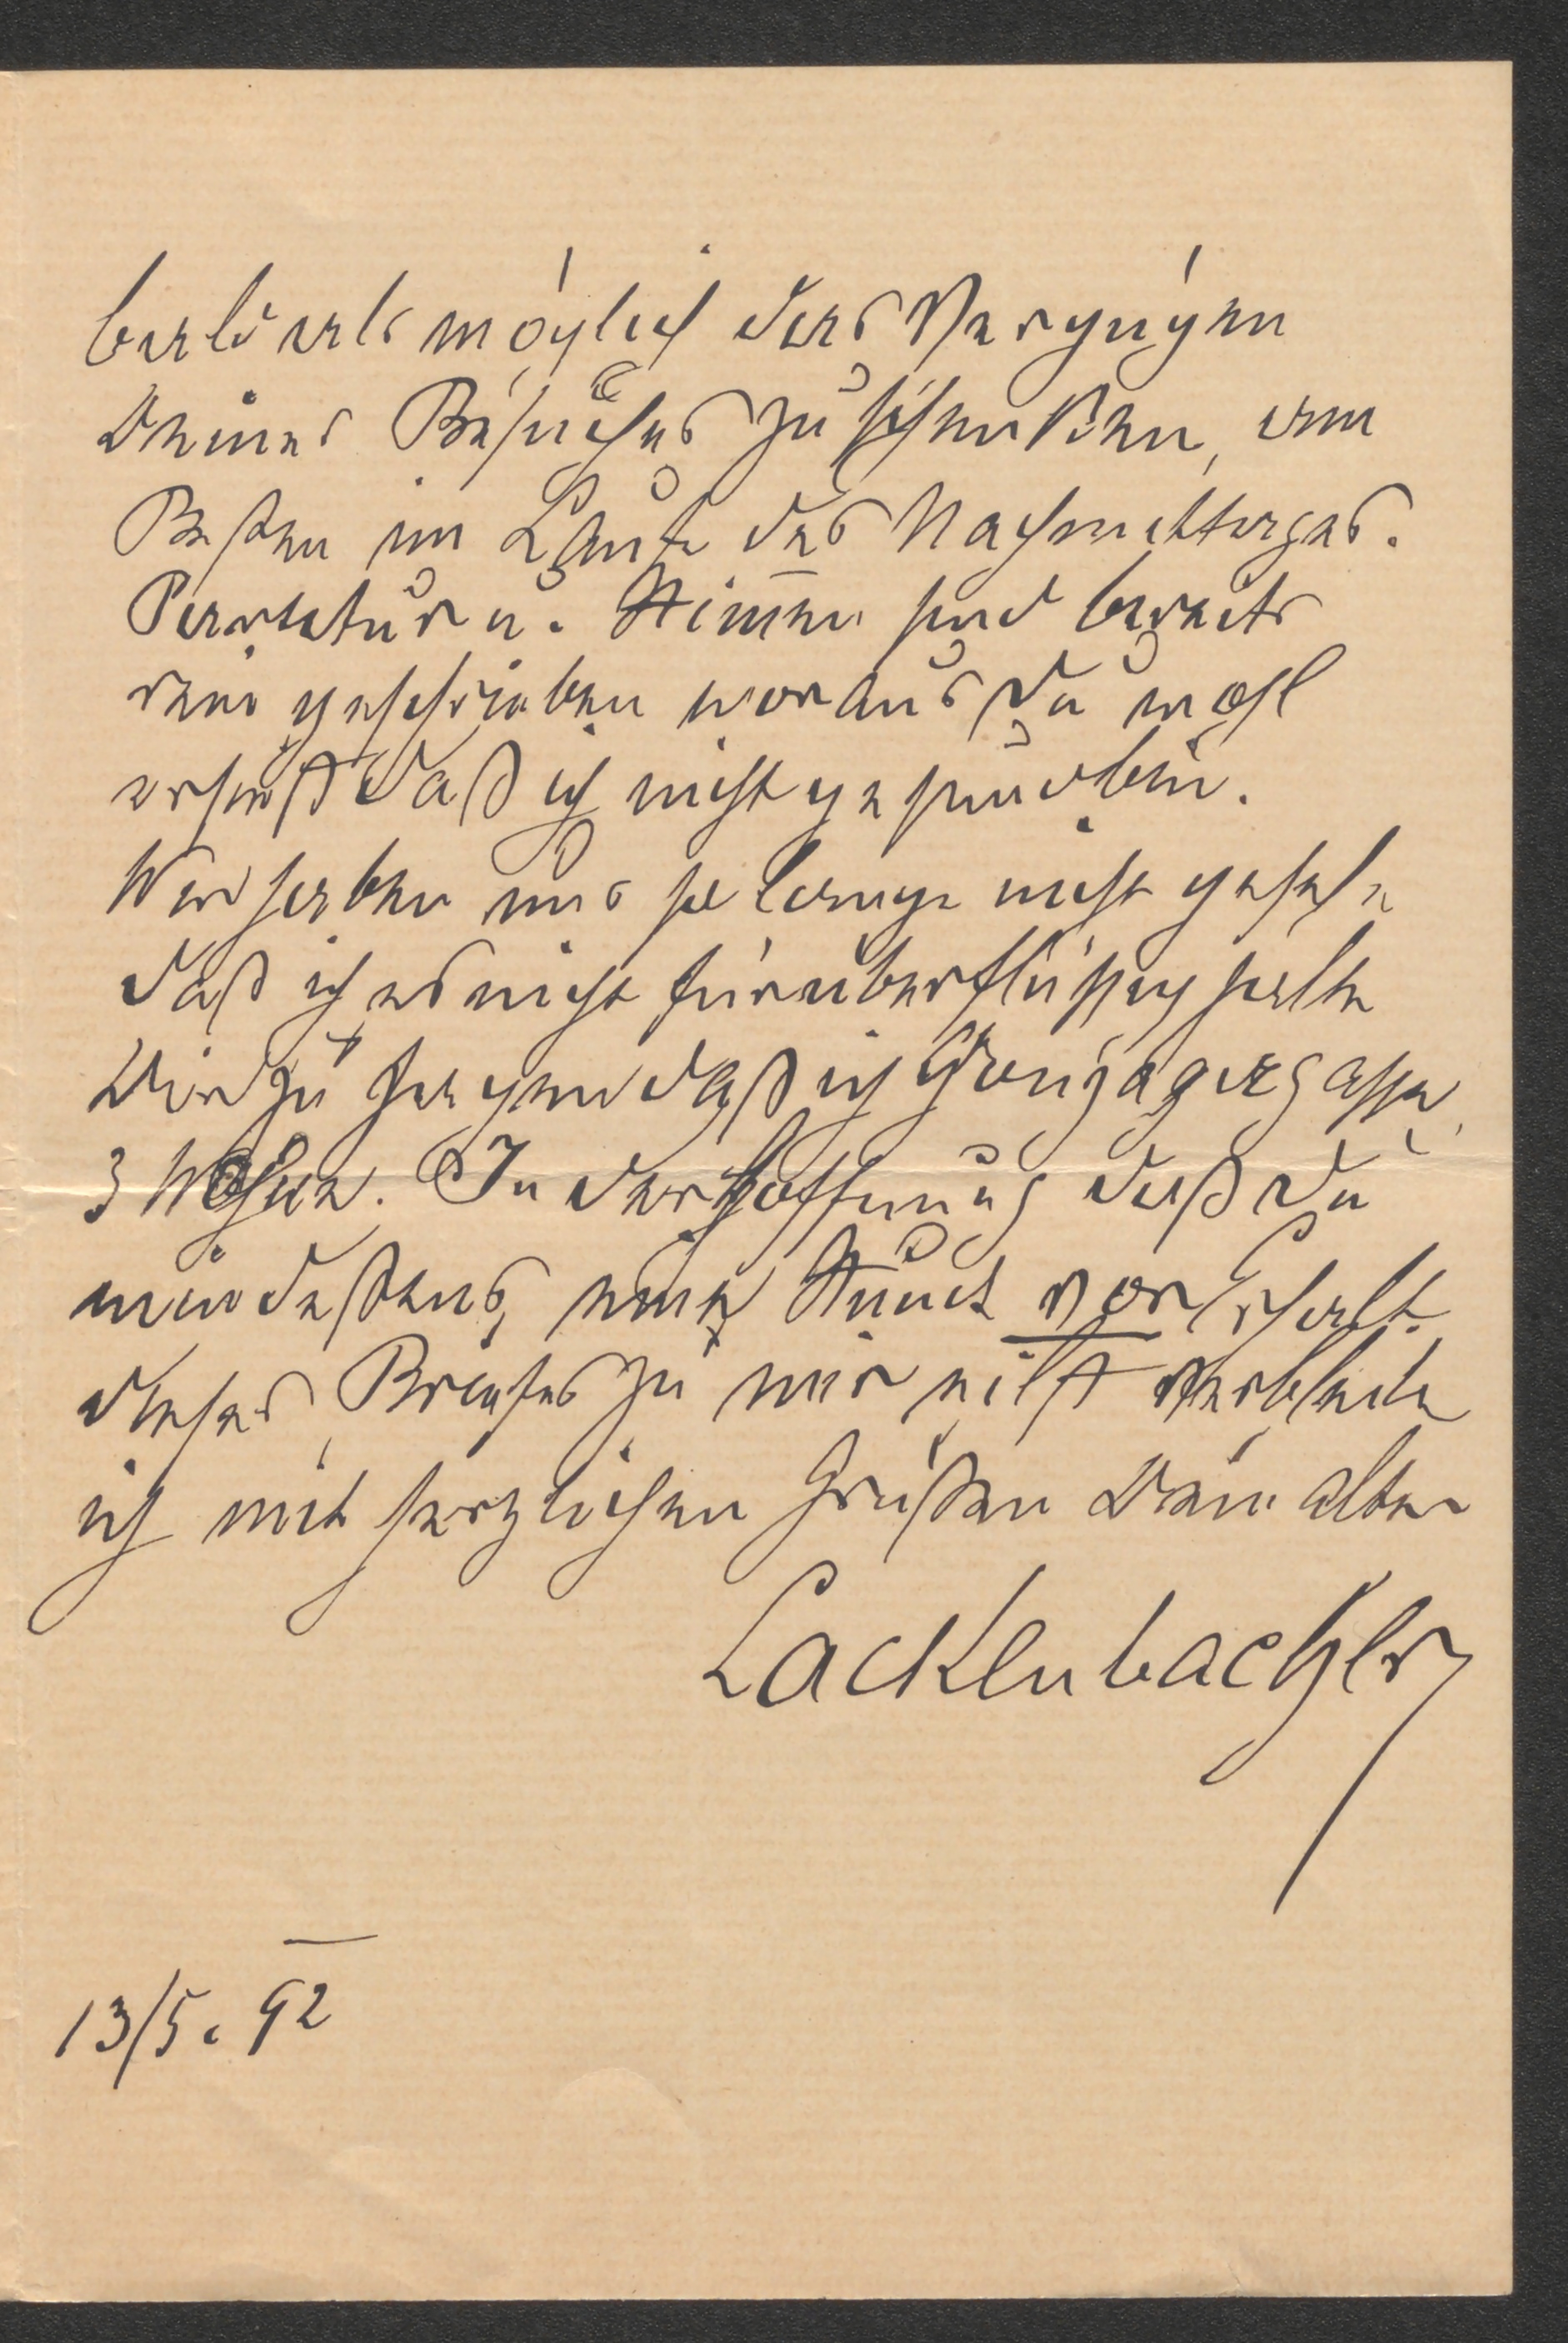 bald als möglich das Vergnügen
Deines Besuches zu schenken, am
Besten im Laufe des Nachmittages.
Partitur u. Stimmen sind bereits
rein geschrieben woraus Du wohl
ersiehst daß ich nicht gesund bin.
Wir haben uns so lange nicht geseh'n
daß ich es nicht für überflüssig halte
Dir zu sagen daß ich Gonzagagasse
3 Wohne. In der Hoffnung daß Du
mindestens eine Stunde vor Erhalt
dieses Briefes zu mir eilst verbleibe
ich mit herzlichen Grüßen Dein alter
Lackenbacher
13/5. 92